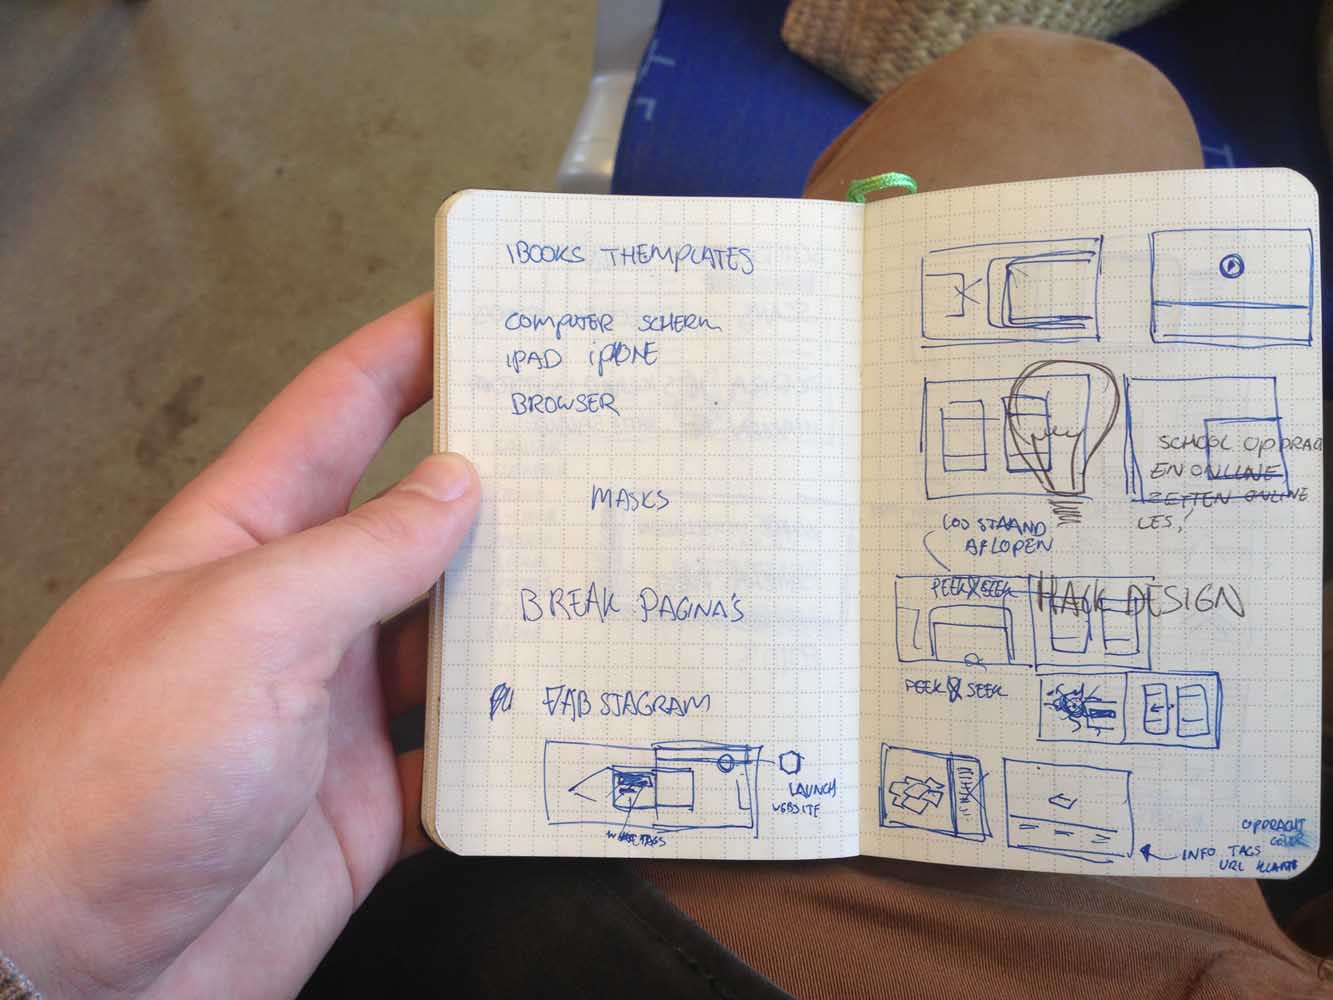 IBOOKS THEMPLATES
COMPUTER SCHERM
IPAD iPHONE
BROWSER
MASKS
BREAK PAGINA'S
FABSTAGRAM
LAUNCH
WEBSITE
TAGS
SCHOOL OPDRAG
EN ONLINE
ZETTEN ONLINE
LES!
LOS STAAND
AFLOPEN
PEEK & SEEK
HACK DESIGN
PEEK & SEEK
OPDRACHT
INFO TAGS
URL KLANT